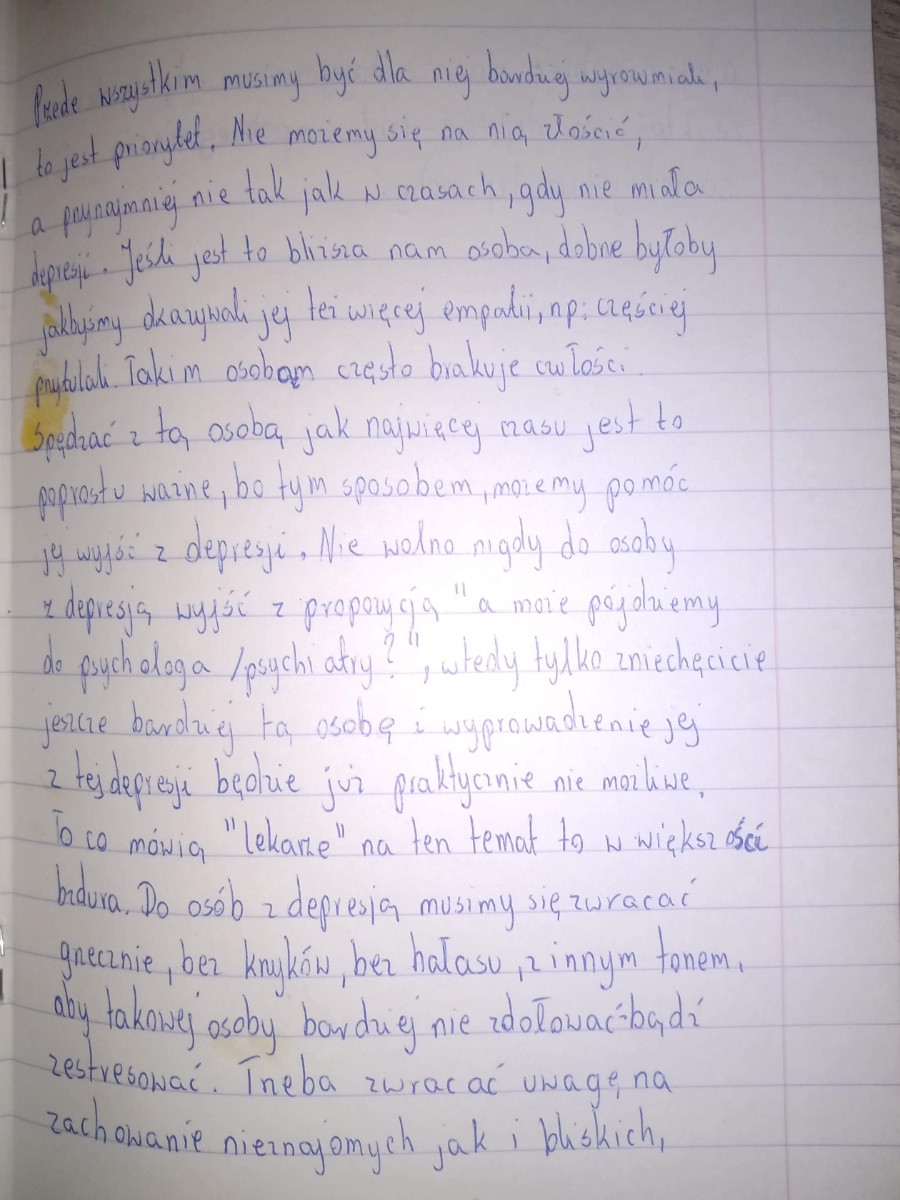 Przede wszystkim musimy być dla niej bardziej wyrowmiali,
to jest priorytet. Nie możemy się na nią złościć,
a przynajmniej nie tak jak w czasach, gdy nie miała
depresji. Jeśli jest to bliższa nam osoba, dobrze byłoby
jakbyśmy okazywali jej też więcej empatii, np: częściej
przytulali. Takim osobom często brakuje czułości.
Spędzać z tą osobą jak najwięcej czasu jest to
poprostu ważne, bo tym sposobem, możemy pomóc
jej wyjść z depresji. Nie wolno nigdy do osoby
z depresją wyjść z propozycją "a może pójdziemy
do psychologa /psychiatry?", wtedy tylko zniechęcicie
jeszcze bardziej tą osobę i wyprowadzenie jej
z tej depresji będzie już praktycznie nie możliwe.
To co mówią "lekarze" na ten temat to w większości
bzdura. Do osób z depresją musimy się zwracać
grzecznie, bez krzyków, bez hałasu, z innym tonem,
aby takowej osoby bardziej nie zdołować bądź
zestresować. Trzeba zwracać uwagę na
zachowanie nieznajomych jak i bliskich,